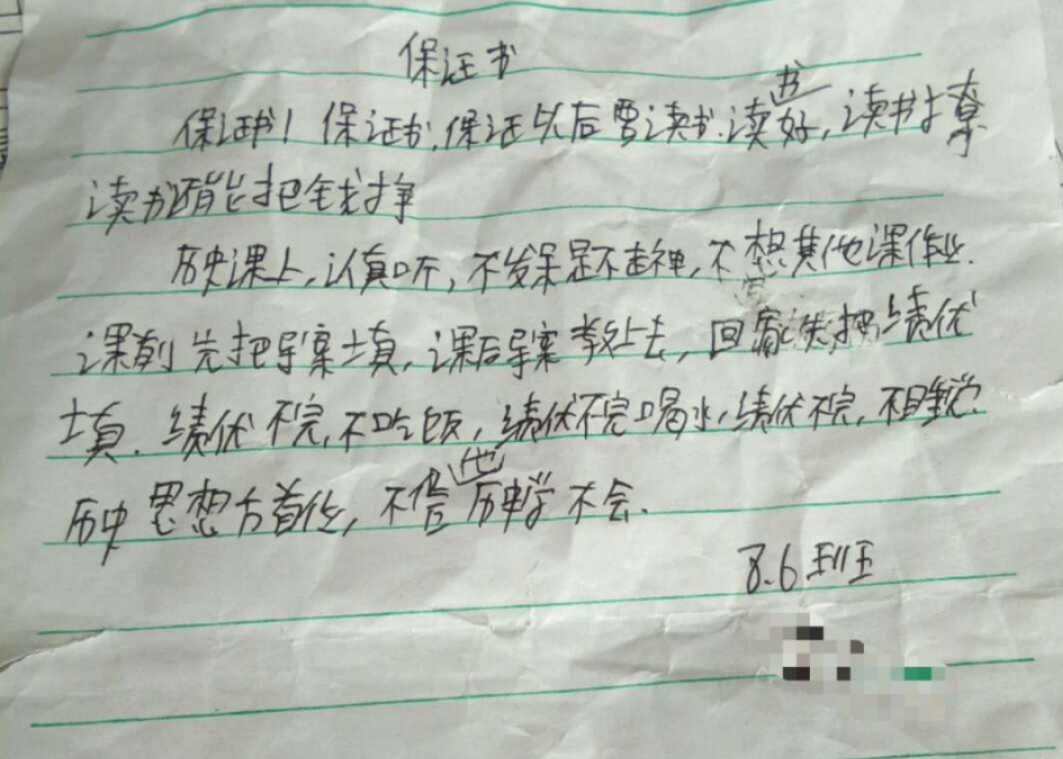 保证书
保证书!保证书,保证以后要读书.读书好,读书才享
读书还能把钱挣
历史课上,认真听,不发呆是不走神,不想其他课作业.
课前先把导案填,课后导案教上去,回家先把绩优
填.绩优不完,不吃饭,绩优不完喝水,绩优不完,不睡觉.
历史思想方首位,不信他历史学不会.
8.6班